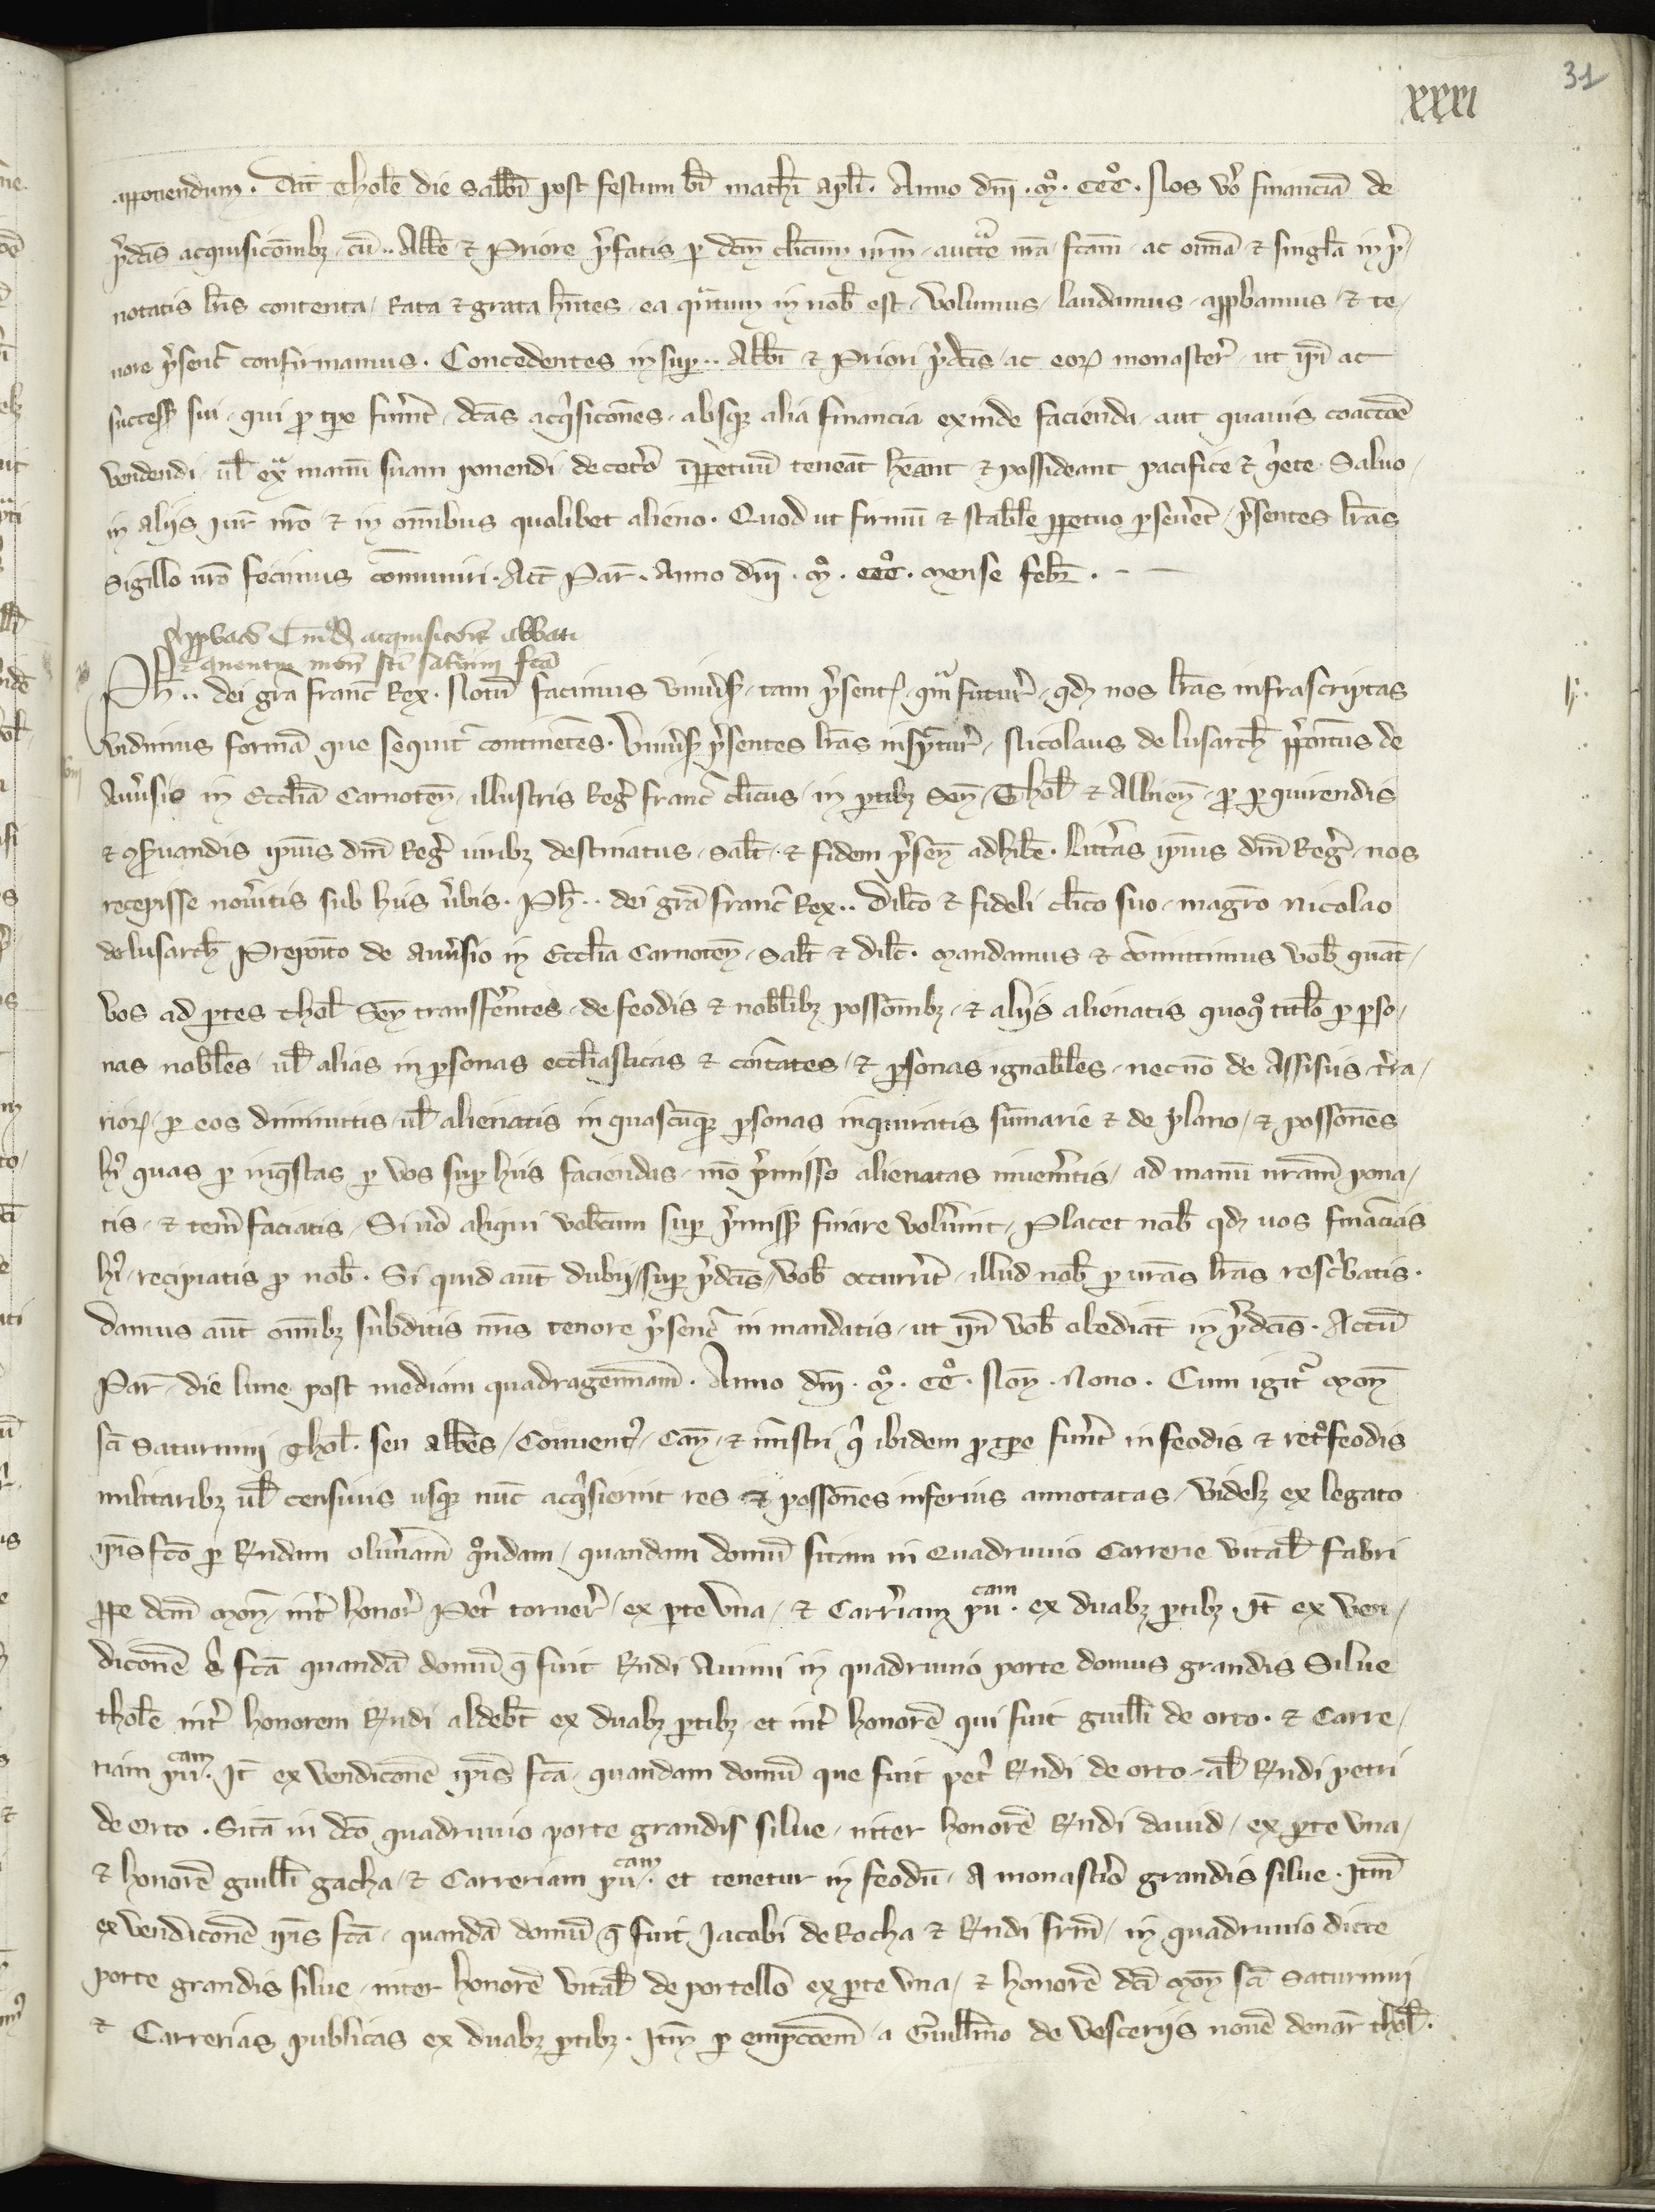 31
xxxi
apponendum. Dat̄ Thol̄e die sabb̄i post festum bī mathī apl̄i. Anno dn̄i .mº. cccº. Nos vͦo financiā de
p̄dcīs acquisicōnibꝫ cū .. Abb̄e & Priore p̄fatis p dcm̄ clicum nr̄m auctte nrā fcām ac omīa & singl̄a in p̄
notatis lr̄is contenta, Rata & grata hn̄tes, ea qͣntum in nob̄ est, volumus, laudamus, appbamus, & te
nore p̄senc̄ confirmamus. Concedentes insup .. Abb̄i & Priori p̄dcīs ac eoꝝ monaster̄ ut ip̄i ac
success̄ sui qui p tp̄e fuer̄int, dcās acqͥsicōnes, absqꝫ alia financia exinde facienda, aut quauis coactōe
vendendi, ul̄ exͣ manū suam ponendi, decet̄o īppetuū teneāt hēant & possideant pacifice & qͥete. Saluo
in alijs iur̄ nr̄o & in omībus quolibet alieno. Quod ut firmū & stabl̄e ppetuo pseuēt, p̄sentes lr̄as
Sigillo nr̄o fecimus com̄muniri. Act̄ Par̄. Anno dn̄i .mº. cccº. mense febr̄.
Ph̄ .. dei gr̄a franc̄ Rex. Notū facimus vniūs, tam p̄sentꝫ qͣm futur̄, qđ nos lr̄as infrascriptas
vidimus formā que sequit̄ continētes. Vniūs p̄sentes lr̄as inspcur̄, Nicolaus de lusarch̄ p̄positus de
Aūsio in Eccl̄ia Carnoten̄, illustris Reḡ franc̄ cl̄icus, in ptibꝫ Sen̄, Thol̄ & Albien̄, p pquirendis
& ꝯseruandis ip̄ius dn̄i Reḡ iuribꝫ destinatus, sal̄t & fidem p̄sen̄ adhibē. Litt̄as ip̄ius dn̄i Reḡ, nos
recepisse noūitis sub hijs ūbis. Ph̄ .. dei gr̄a franc̄ Rex .. Dil̄co & fideli cl̄ico suo magrō nicolao
de lusarch̄ Preposito de aūsio in Eccl̄ia Carnoten̄, Salt̄ & dil̄c. mandamus & com̄ittimus vob̄ quat̄
vos ad ptes thol̄ Sen̄ transferentes, de feodis & nobl̄ibꝫ possōnibꝫ & alijs alienatis quoqͦ titl̄o p pso
nas nobl̄es, ul̄ alias in psonas eccl̄iasticas & cōitates, & psonas ignobl̄es, necnō de Assisijs tr̄a
rioꝝ, p eos diminutis ul̄ alienatis in quascūqꝫ psonas inquiratis sūmarie & de plano, & possōnes
hͥ quas p inqͥstas p vos sup hijs faciendas, mō p̄misso alienatas inueneritis, ad manū nrām pona
tis, & teneri faciatis. Si uͦo aliqui vobc̄um sup p̄miss̄ finare volūint, Placet nob̄ qđ uos fināncias
hͥ recipiatis p nob̄. Si quid aut̄ dubij sup p̄dcīs vob̄ occurrit, illud nob̄ p urās lr̄as resc̄batis.
damus aut̄ omībꝫ subditis nr̄is tenore p̄senc̄ in mandatis, ut ip̄i vob̄ obediāt in p̄dcīs. Actū
Par̄ die lune post mediam quadragesimam. Anno dn̄i .mº. ccº. Non̄. Nono. Cum igit̄ mon̄
sc̄i Saturnini Thol̄. seu abb̄es, Conuent̄, Can̄, & ministri qͥ ibidem p tp̄e fuer̄t in feodis & ret̄ofeodis
militaribꝫ ul̄ censiuis usqꝫ nūc acqͥsierint res & possōnes inferius annotatas, videlꝫ ex legato
ip̄is fcō p Rndam oliūiam qͦndam, quandam domū sitam in Quadruuio Carrerie vital̄ fabri
ppe dcm̄ mon̄, int̄ honor̄ Pet̄ torner̄, ex pte vna, & Carr̄iam pu.cam ex duabꝫ ptibꝫ. It̄ ex ven
dicōnē ſ̄ fcā quandā domū q̄ fuit Rndi Auini in quadruuio porte domus grandis Silue
thol̄e int̄ honorem Rndi aldebt̄ ex duabꝫ ptibꝫ, et int̄ honorē qui fuit guill̄i de orto. & Carre
riam pu.cam It̄ ex vendicōnē ip̄is fcā, quandam domū que fuit pet̄ Rndi de orto, al̄ Rndi petri
de Orto. Sitā in dcō quadruuio porte grandis silue, inter honorē Rndi dauid, ex pte vna,
& honorē guill̄i gacha, & Carreriam pu.cam et tenetur in feodū, A monastͥo grandis silue. Itm̄
ex vendicōnē ip̄is fcā, quandā domū q̄ fuit Jacobi de Rocha & Rndi frm̄, in quadruuio dicte
porte grandis silue, inter honorē vital̄ de portello ex pte vna, & honorē dcī mon̄ sc̄i Saturnini
& Carrerias publicas ex duabꝫ ptibꝫ. Itm̄ p empcōem̄ a Guill̄mo de vescerijs nouē denar̄ thol̄.